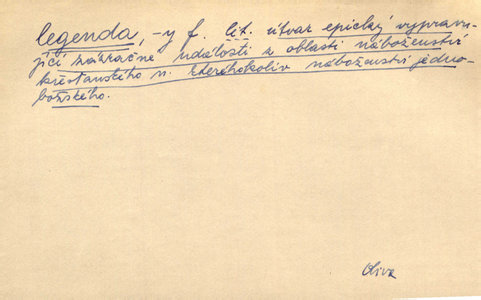 legenda, -y f. lit. útvar epický vypravu-
jící zázračné události z oblasti náboženství
křesťanského n. kteréhokoliv náboženství jedno-
božského.
Oliva